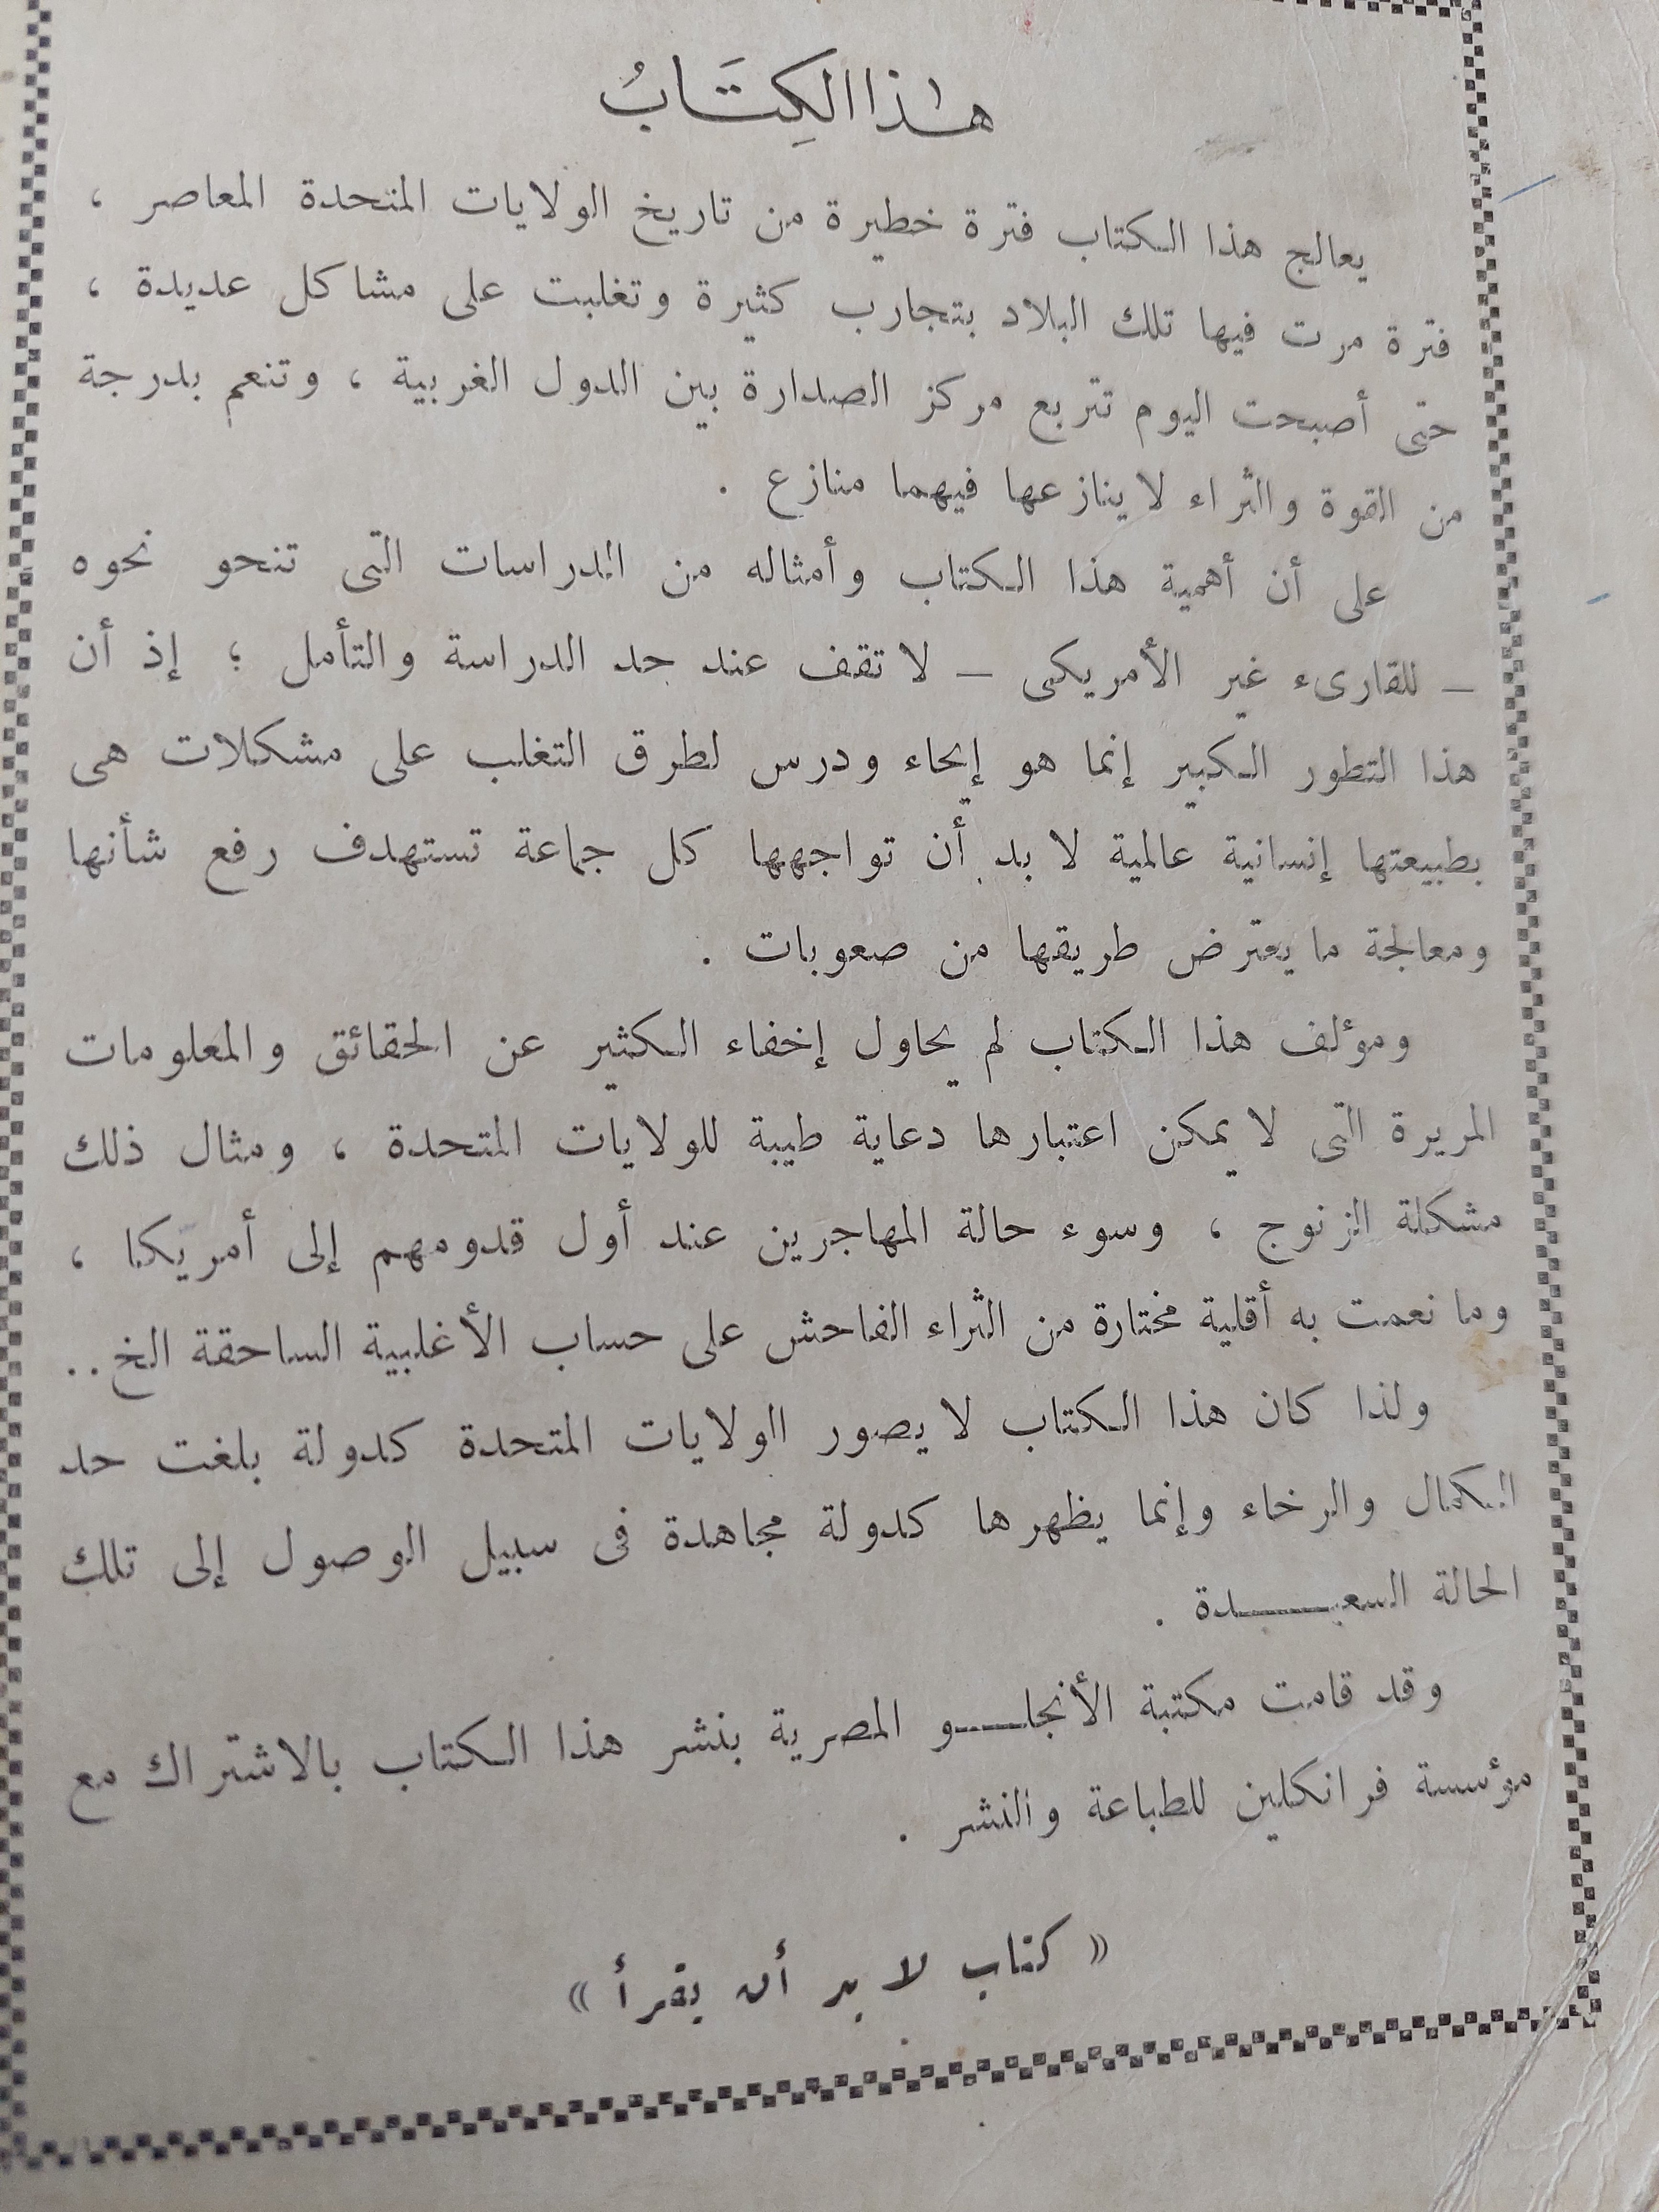 هٰذا الكِتَابُ
يعالج هذا الكتاب فترة خطيرة من تاريخ الولايات المتحدة المعاصر ،
فترة مرت فيها تلك البلاد بتجارب كثيرة وتغلبت على مشاكل عديدة ،
حتى أصبحت اليوم تتربع مركز الصدارة بين الدول الغربية ، وتنعم بدرجة
من القوة والثراء لا ينازعها فيهما منازع .
على أن أهمية هذا الكتاب وأمثاله من الدراسات التى تنحو نحوه
– للقارىء غير الأمريكى – لا تقف عند حد الدراسة والتأمل ؛ إذ أن
هذا التطور الكبير إنما هو إيحاء ودرس لطرق التغلب على مشكلات هى
بطبيعتها إنسانية عالمية لا بد أن تواجهها كل جماعة تستهدف رفع شأنها
ومعالجة ما يعترض طريقها من صعوبات .
ومؤلف هذا الكتاب لم يحاول إخفاء الكثير عن الحقائق والمعلومات
المريرة التى لا يمكن اعتبارها دعاية طيبة للولايات المتحدة ، ومثال ذلك
مشكلة الزنوج ، وسوء حالة المهاجرين عند أول قدومهم إلى أمريكا ،
وما نعمت به أقلية مختارة من الثراء الفاحش على حساب الأغلبية الساحقة الخ ..
ولذا كان هذا الكتاب لا يصور الولايات المتحدة كدولة بلغت حد
الكمال والرخاء وإنما يظهرها كدولة مجاهدة فى سبيل الوصول إلى تلك
الحالة السعيـــــدة .
وقد قامت مكتبة الأنجلـــو المصرية بنشر هذا الكتاب بالاشتراك مع
مؤسسة فرانكلين للطباعة والنشر .
« كتاب لا بد أن يقرأ »